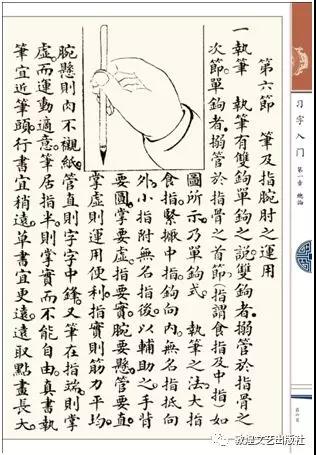 习字入门
第一章 總論
第六節 筆及指腕肘之運用
一執筆 執筆有雙鉤單鉤之説。雙鉤者。搦管於指骨之
次節。單鉤者。搦管於指骨之首節(指謂食指及中指)如
圖所示。乃單鉤式。 執筆之法。大指
食指緊擫。中指鉤向內。無名指抵向
外。小指附無名指後以輔助之。手背
要圓。掌要虛。指要實。腕要懸。管要直。
掌虛則運用便利。指實則筋力平均。
腕懸則肉不襯紙。管直則字字中鋒。又筆在指端。則掌
虛而運動適意。筆居指半。則掌實而不能自由。真書執
筆宜近筆頭。行書宜稍遠。草書宜更遠。遠取點畫長大。
敦煌文艺出版社